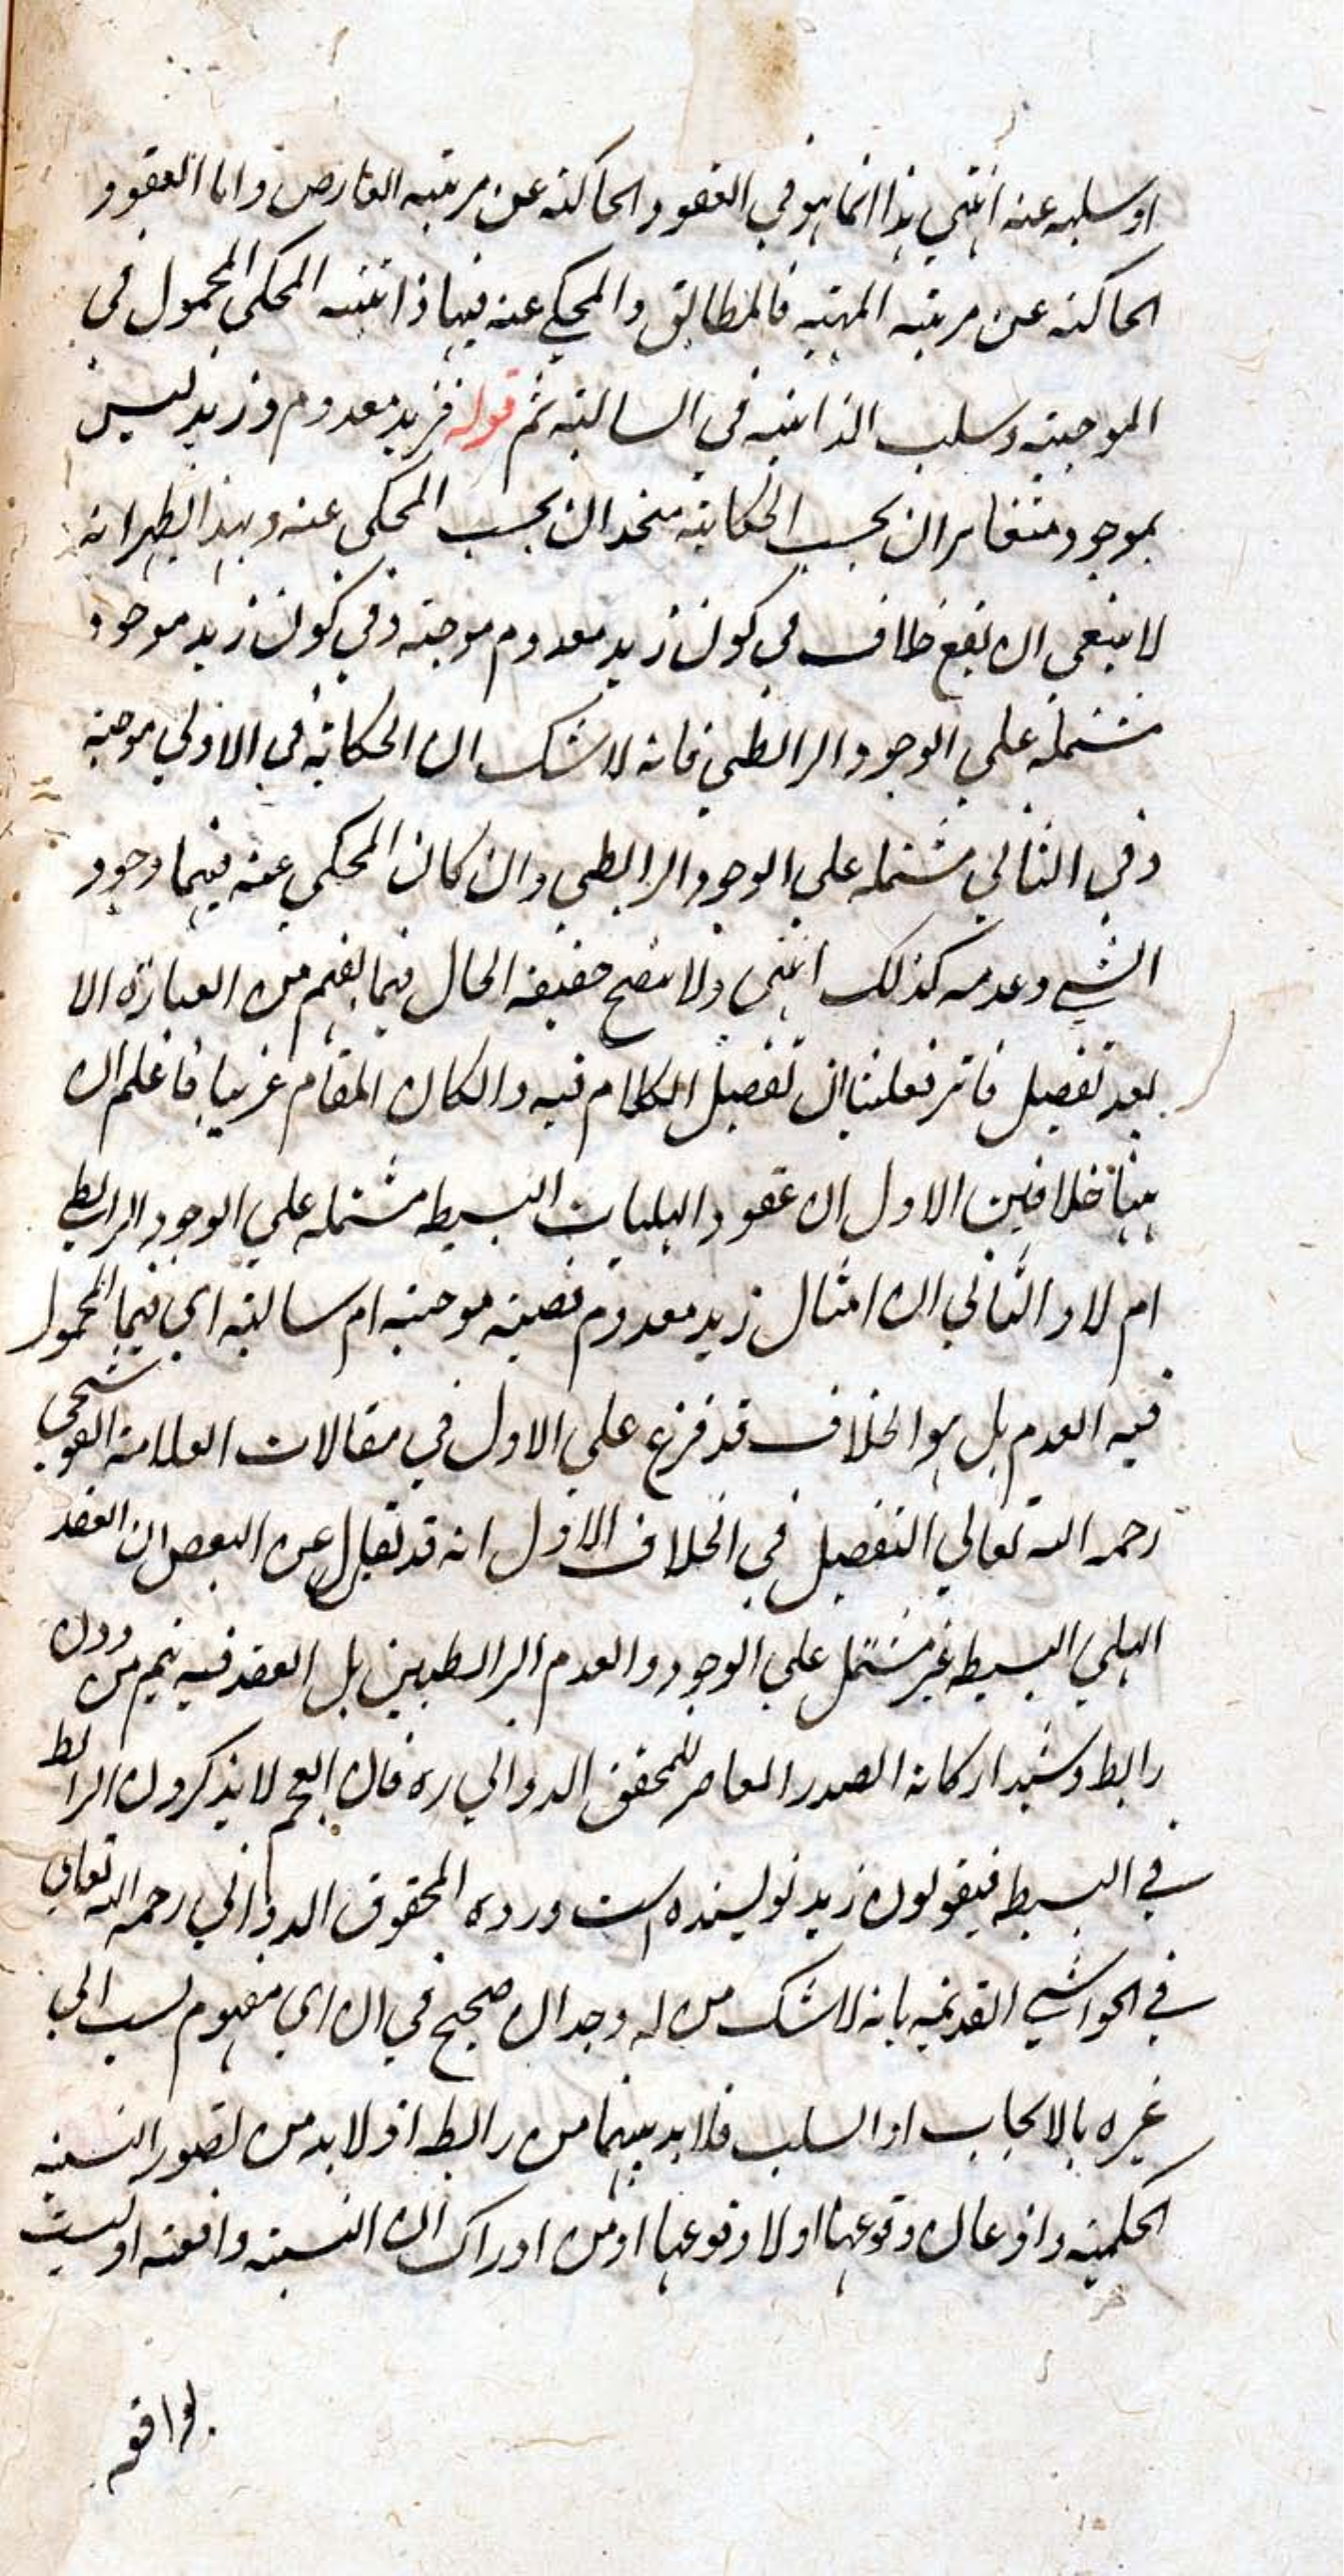 او سلبه عنه انتهى هذا انما هو في العقود الحاكية عن مرتبة العارض واما العقود
الحاكية عن مرتبة المهية فالمطابق والمحكي عنه فيها ذاتية المحكي المحمول في
الموجبة وسلب الذاتية في السالبة ثم قوله فزيد معدوم وزيد ليس
بموجود متغايران بحسب الحكاية متحدان بحسب المحكي عنه وبهذا يظهر انه
لا ينبغي ان يقع خلاف في كون زيد معدوم موجبة وفي كون زيد موجود
مشتملة على الوجود الرابطي فانه لا شك ان الحكاية في الاولى موجبة
وفي الثاني مشتملة على الوجود الرابطي وان كان المحكي عنه فيهما وجود
الشيء وعدمه كذلك انتهى ولا يتضح حقيقة الحال فيما يفهم من العبارة الا
بعد تفصيل علينا ان تفصيل الكلام فيه والكان المقام غريبا فاعلم ان
ههنا خلافين الاول ان عقود الهليات البسيطه مشتملة على الوجود الرابطي
ام لا والثاني ان امثال زيد معدوم قضية موجبة ام سالبة اي فيما المحمول
فيه العدم بل هو الخلاف قد فرع على الاول في مقالات العلامة القوشجي
رحمه الله تعالى التفصيل في الخلاف الاول انه قد نقل عن البعض ان العقد
الهلي البسيط غير مشتمل على الوجود والعدم الرابطيين بل العقد فيه يتم من دون
رابط وشيد اركانه الصدر المعاصر للمحقق الدواني ره فان العجم لا يذكرون الرابط
في البسيط فيقولون زيد نويسنده است ورده المحقوق الدواني رحمه الله تعالى
في الحواشي القديمة بانه لا شك من له وجدان صحيح في ان اي مفهوم نسب الى
غيره بالايجاب او السلب فلا بد بينهما من رابطه اذ لا بد من تصور النسبة
الحكمية واذعان وقوعها او لا وقوعها او من ادراك ان النسبة واقعة او ليست
بواقعة